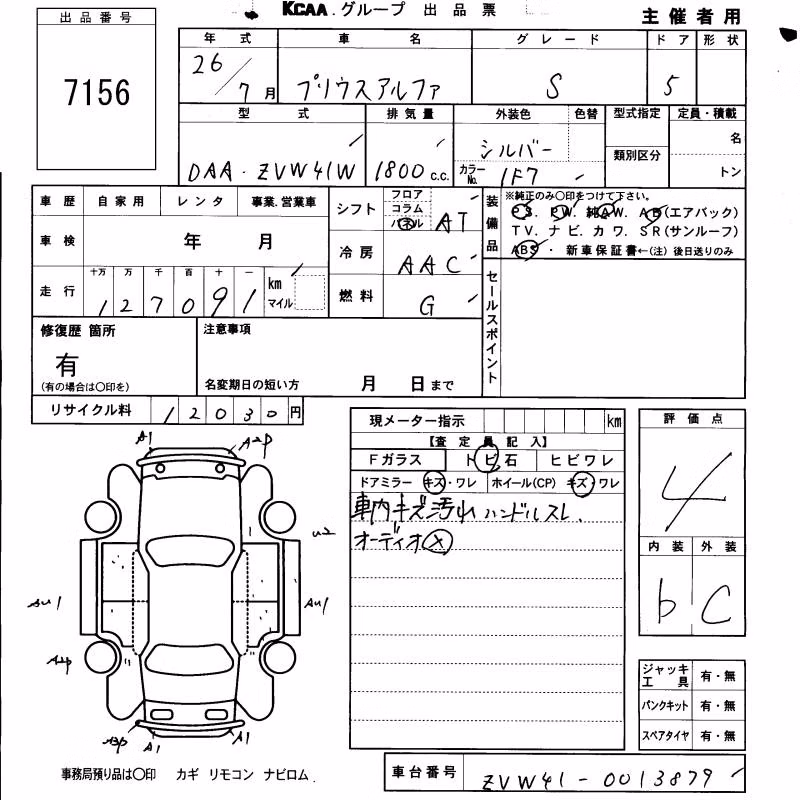 KCAA.グループ 出品票
主催者用
出品番号
7156
年式 車名 グレード ドア 形状
26/7月 プリウスアルファ S 5
型式 排気量 外装色 色替 型式指定 定員・積載
DAA-ZVW41W 1800 c.c. シルバー 類別区分 名
カラーNo. 1F7 トン
車歴 自家用 レンタ 事業.営業車
シフト フロア コラム パネル AT
装備品 ※純正のみ〇印をつけて下さい。
PS. PW. 純AW. AB(エアバック)
TV. ナビ. カワ. SR(サンルーフ)
ABS・ 新車保証書←(注) 後日送りのみ
車検 年 月
冷房 AAC
走行 十万 万 千 百 十 一 km マイル
127091
燃料 G
セールスポイント
修復歴 箇所
有
(有の場合は〇印を)
注意事項
名変期日の短い方 月 日まで
リサイクル料 12030円
現メーター指示 km
【査定員記入】
Fガラス トビ石 ヒビワレ
ドアミラー キズ・ワレ ホイール(CP) キズ・ワレ
車内キズ汚れ ハンドルスレ.
オーディオ×
評価点
4
内装 外装
b C
A1 A2P
U2
AU1 AU1
A2P
A3P A1 A1
ジャッキ工具 有・無
パンクキット 有・無
スペアタイヤ 有・無
事務局預り品は〇印 カギ リモコン ナビロム.
車台番号 ZVW41-0013879